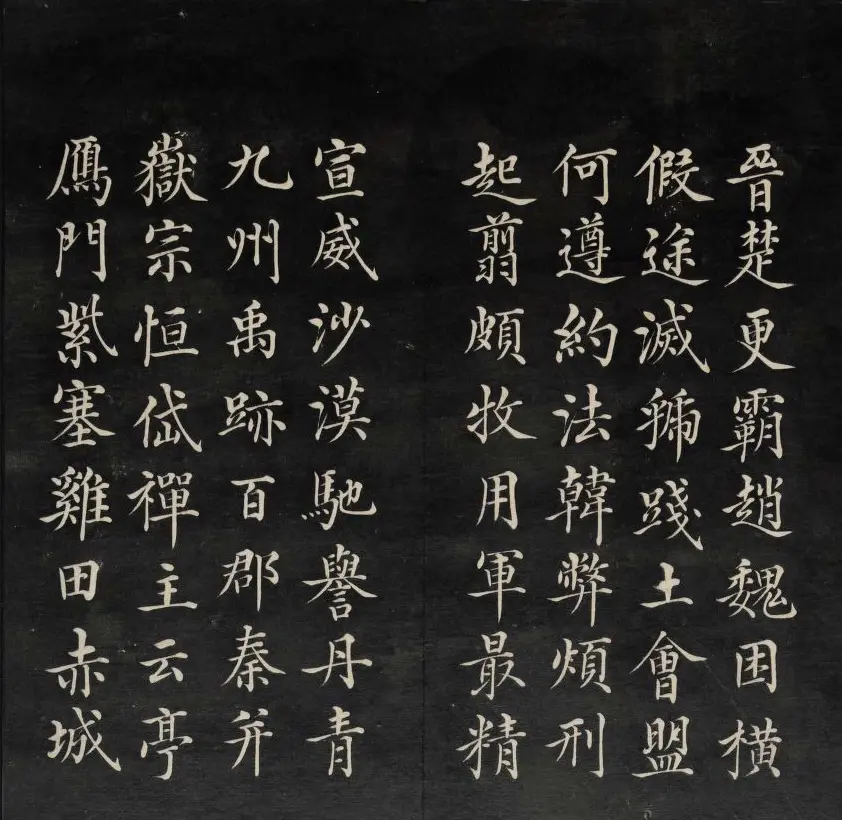 晉楚更霸趙魏困橫
假途滅虢踐土會盟
何遵約法韓弊煩刑
起翦頗牧用軍最精
宣威沙漠馳譽丹青
九州禹跡百郡秦并
嶽宗恒岱禪主云亭
鴈門紫塞雞田赤城